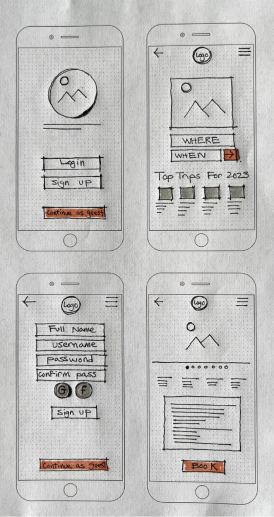 Login
Sign up
Continue as guest
Logo
WHERE
WHEN
Top Trips For 2023
Logo
Full Name
username
password
confirm pass
G F
Sign up
Continue as guest
Logo
BOOK